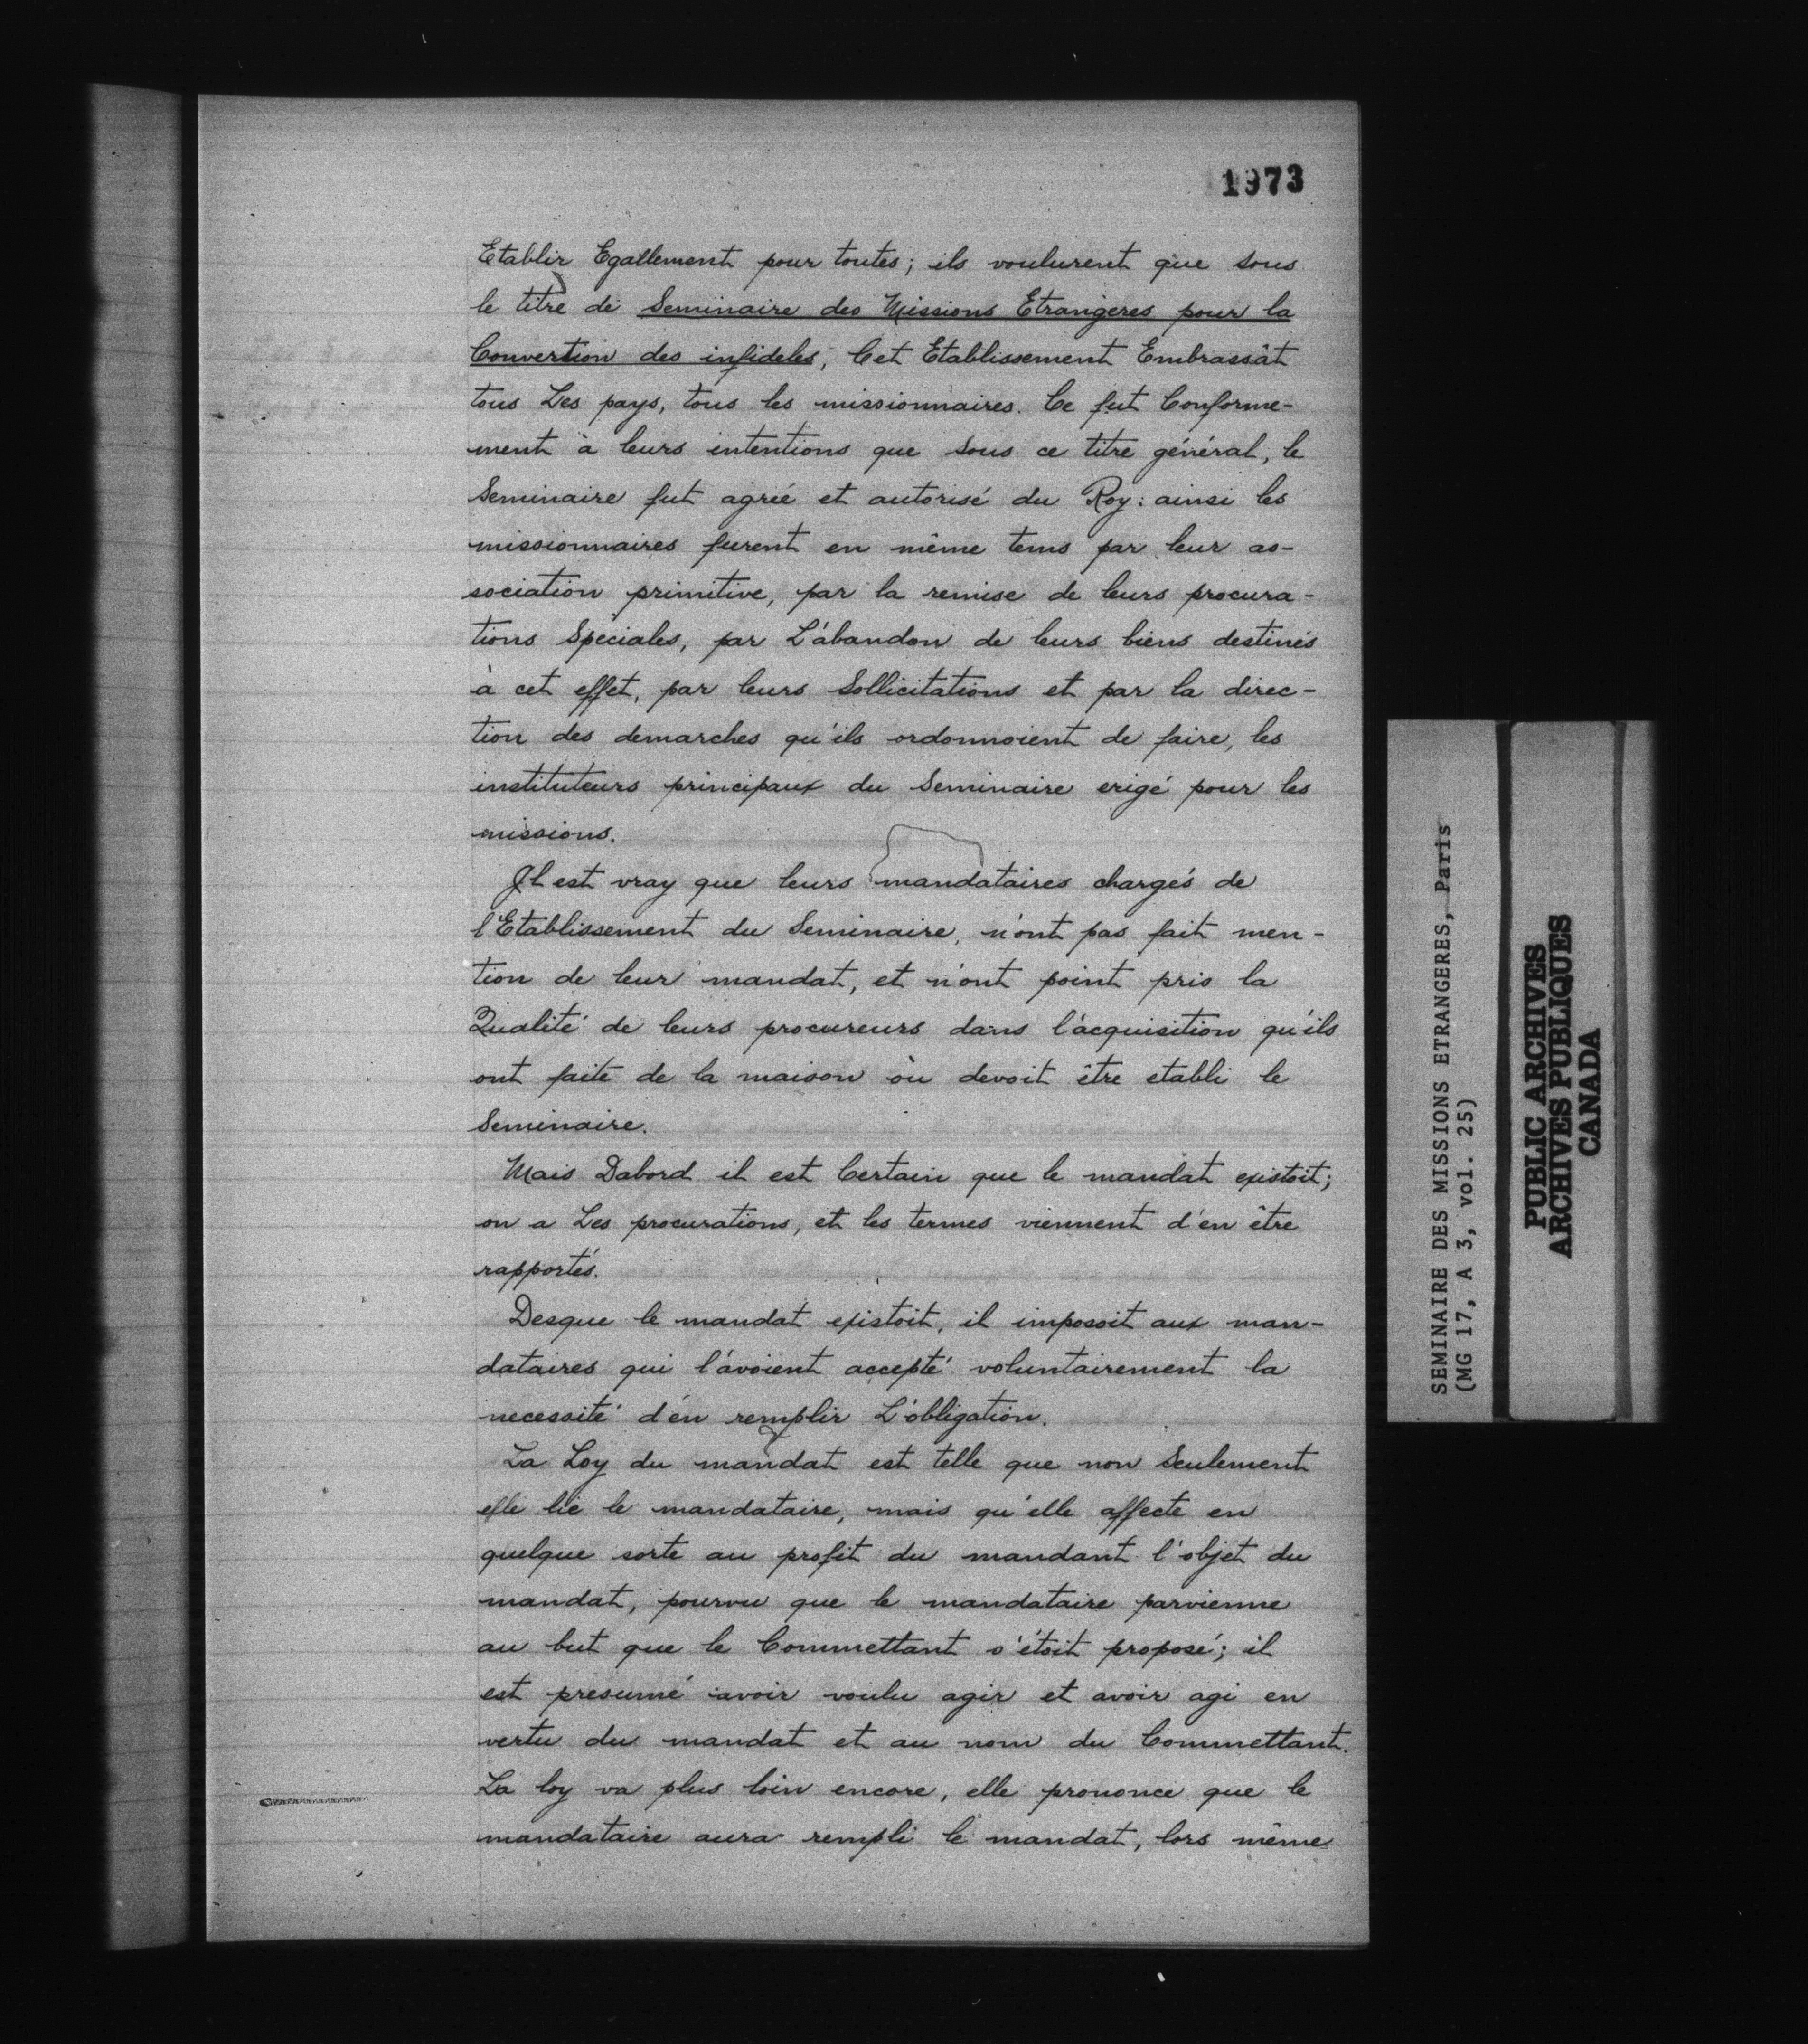 1973
Etablir Egallement pour toutes; ils voulurent que sous
le titre de Seminaire des Missions Etrangeres pour la
Convertion des infideles, Cet Etablissement Embrassât
tous Les pays, tous les missionnaires. Ce fut Conforme-
ment à leurs intentions que sous ce titre général, le
Seminaire fut agréé et autorisé du Roy: ainsi les
missionnaires furent en même tems par leur as-
sociation primitive, par la remise de leurs procura-
tions Speciales, par L'abandon de leurs biens destinés
à cet effet, par leurs Sollicitations et par la direc-
tion des demarches qu'ils ordonnoient de faire, les
instituteurs principaux du Seminaire erigé pour les
missions.
Il est vray que leurs mandataires chargés de
l'Etablissement du Seminaire, n'ont pas fait men-
tion de leur mandat, et n'ont point pris la
Qualité de leurs procureurs dans l'acquisition qu'ils
ont faite de la maison où devoit être etabli le
Seminaire.
Mais Dabord il est Certain que le mandat existoit;
on a Les procurations, et les termes viennent d'en être
rapportés.
Desque le mandat existoit, il imposoit aux man-
dataires qui l'avoient accepté voluntairement la
necessité d'en remplir L'obligation.
La Loy du mandat est telle que non Seulement
elle lie le mandataire, mais qu'elle affecte en
quelque sorte au profit du mandant l'objet du
mandat, pourvu que le mandataire parvienne
au but que le Commettant s'étoit proposé; il
est presumé avoir voulu agir et avoir agi en
vertu du mandat et au nom du Commettant.
La loy va plus loin encore, elle prononce que le
mandataire aura rempli le mandat, lors même
SEMINAIRE DES MISSIONS ETRANGERES, Paris
(MG 17, A 3, vol. 25)
PUBLIC ARCHIVES
ARCHIVES PUBLIQUES
CANADA